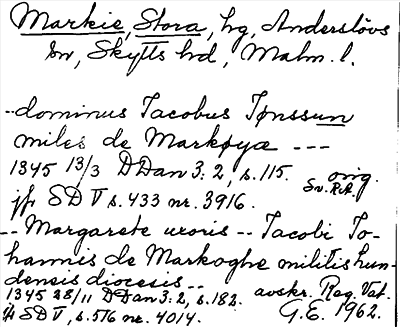 Markie, Stora, hg, Anderslövs
sn, Skytts hd, Malm. l.
--dominus Jacobus Jønssun
miles de Markøyæ ---
1345 13/3 DDan 3:2, s. 115. orig.
Sv. R.A.
jfr SD V s. 433 nr. 3916.
-- Margarete uxoris -- Jacobi Jo-
hannis de Markoghe militis hun-
densis diocesis --
1345 28/11 DDan 3:2, s. 182. avskr. Reg. Vat.
jfr SD V, s. 516 nr. 4014. G.E. 1962.